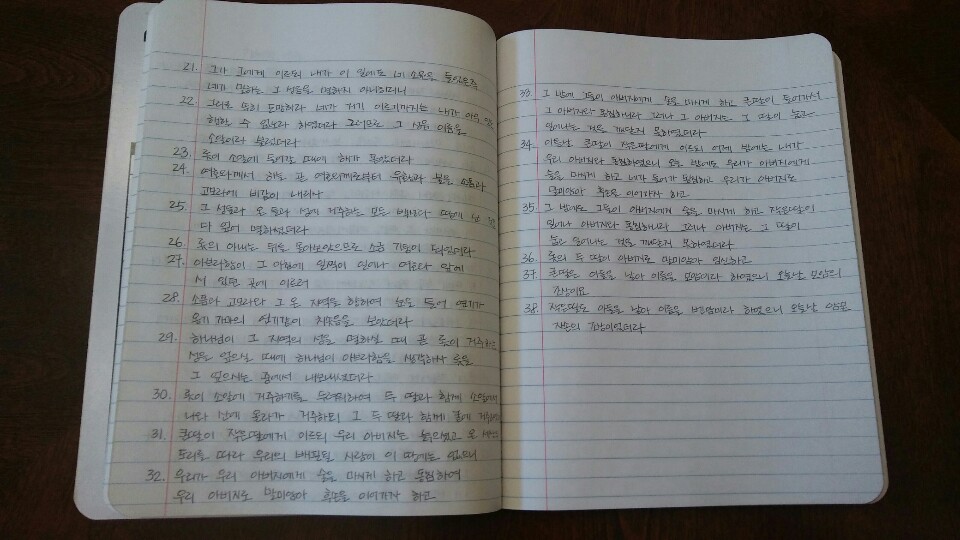 21. 그가 그에게 이르되 내가 이 일에도 네 소원을 들었은즉
네가 말하는 그 성읍을 멸하지 아니하리니
22. 그리로 속히 도망하라 네가 거기 이르기까지는 내가 아무 일도
행할 수 없노라 하였더라 그러므로 그 성읍 이름을
소알이라 불렀더라
23. 롯이 소알에 들어갈 때에 해가 돋았더라
24. 여호와께서 하늘 곧 여호와께로부터 유황과 불을 소돔과
고모라에 비같이 내리사
25. 그 성들과 온 들과 성에 거주하는 모든 백성과 땅에 난 것을
다 엎어 멸하셨더라
26. 롯의 아내는 뒤를 돌아보았으므로 소금 기둥이 되었더라
27. 아브라함이 그 아침에 일찍이 일어나 여호와 앞에
서 있던 곳에 이르러
28. 소돔과 고모라와 그 온 지역을 향하여 눈을 들어 연기가
옹기 가마의 연기같이 치솟음을 보았더라
29. 하나님이 그 지역의 성을 멸하실 때 곧 롯이 거주하는
성을 엎으실 때에 하나님이 아브라함을 생각하사 롯을
그 엎으시는 중에서 내보내셨더라
30. 롯이 소알에 거주하기를 두려워하여 두 딸과 함께 소알에서
나와 산에 올라가 거주하되 그 두 딸과 함께 굴에 거주하
31. 큰딸이 작은딸에게 이르되 우리 아버지는 늙으셨고 온 세상의
도리를 따라 우리의 배필될 사람이 이 땅에는 없으니
32. 우리가 우리 아버지에게 술을 마시게 하고 동침하여
우리 아버지로 말미암아 후손을 이어가자 하고
33. 그 밤에 그들이 아버지에게 술을 마시게 하고 큰딸이 들어가서
그 아버지와 동침하니라 그러나 그 아버지는 그 딸이 눕고
일어나는 것을 깨닫지 못하였더라
34. 이튿날 큰딸이 작은딸에게 이르되 어제 밤에는 내가
우리 아버지와 동침하였으니 오늘 밤에도 우리가 아버지에게
술을 마시게 하고 네가 들어가 동침하고 우리가 아버지로
말미암아 후손을 이어가자 하고
35. 그 밤에도 그들이 아버지에게 술을 마시게 하고 작은딸이
일어나 아버지와 동침하니라 그러나 아버지는 그 딸이
눕고 일어나는 것을 깨닫지 못하였더라
36. 롯의 두 딸이 아버지로 말미암아 임신하고
37. 큰딸은 아들을 낳아 이름을 모압이라 하였으니 오늘날 모압의
조상이요
38. 작은딸도 아들을 낳아 이름을 벤암미라 하였으니 오늘날 암몬
자손의 조상이었더라